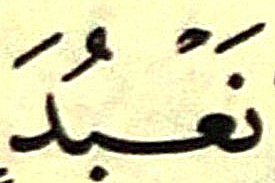 نَعْبُدَ